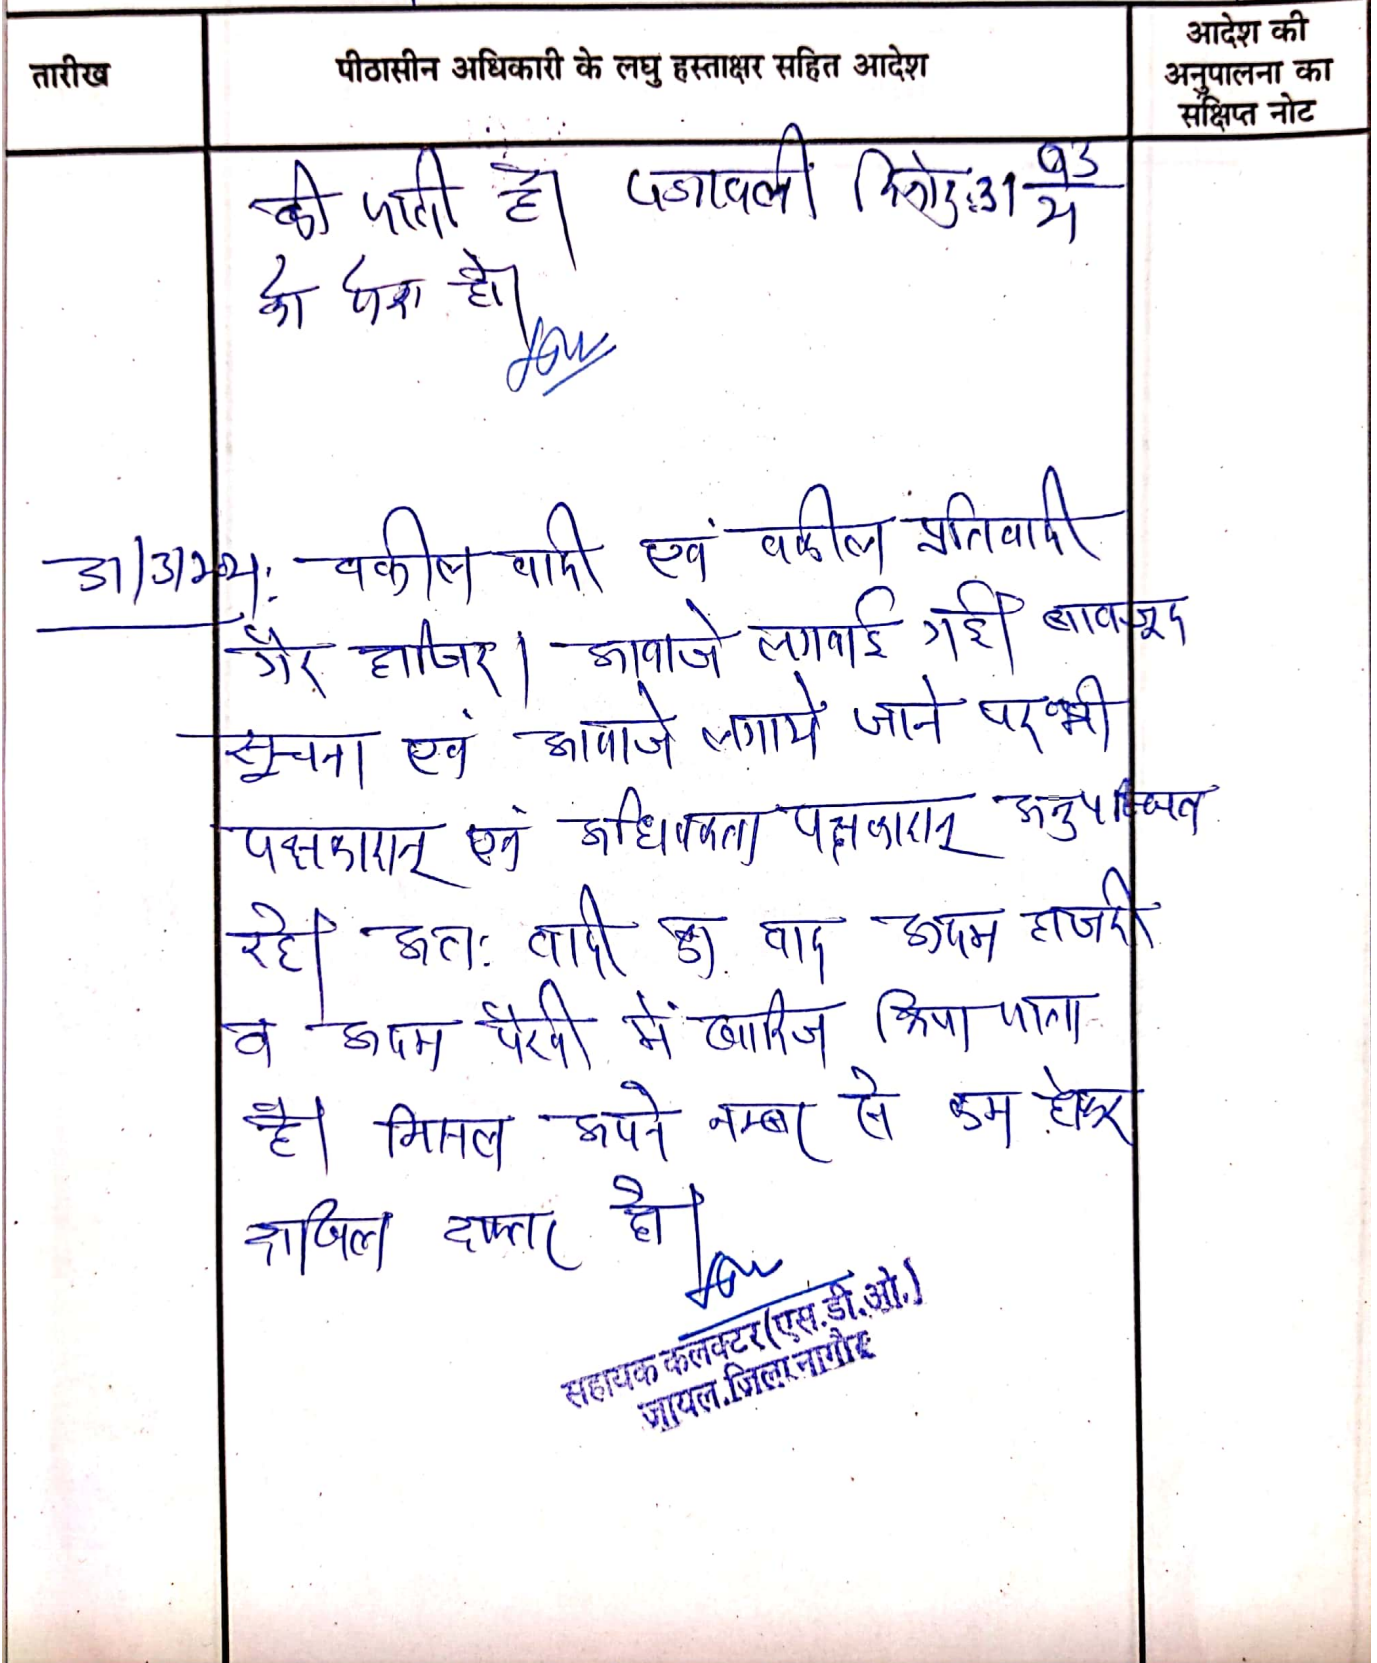 तारीख
पीठासीन अधिकारी के लघु हस्ताक्षर सहित आदेश
आदेश की
अनुपालना का
संक्षिप्त नोट
की जाती है। पत्रावली दिनांक 31
को पेश हो।
31/3/24: वकील वादी एवं वकील प्रतिवादी
गैर हाजिर। आवाजे लगवाई गई बावजूद
सूचना एवं आवाजे लगाये जाने पर भी
पक्षकारान् एवं अधिवक्ता पक्षकारान् अनुपस्थित
रहे। अतः वादी का वाद अदम हाजरी
व अदम पैरवी में खारिज किया जाता
है। मिसल अपने नम्बर से कम होकर
दाखिल दफ्तर हो।
सहायक कलक्टर(एस.डी.ओ.)
जायल.जिला नागौर